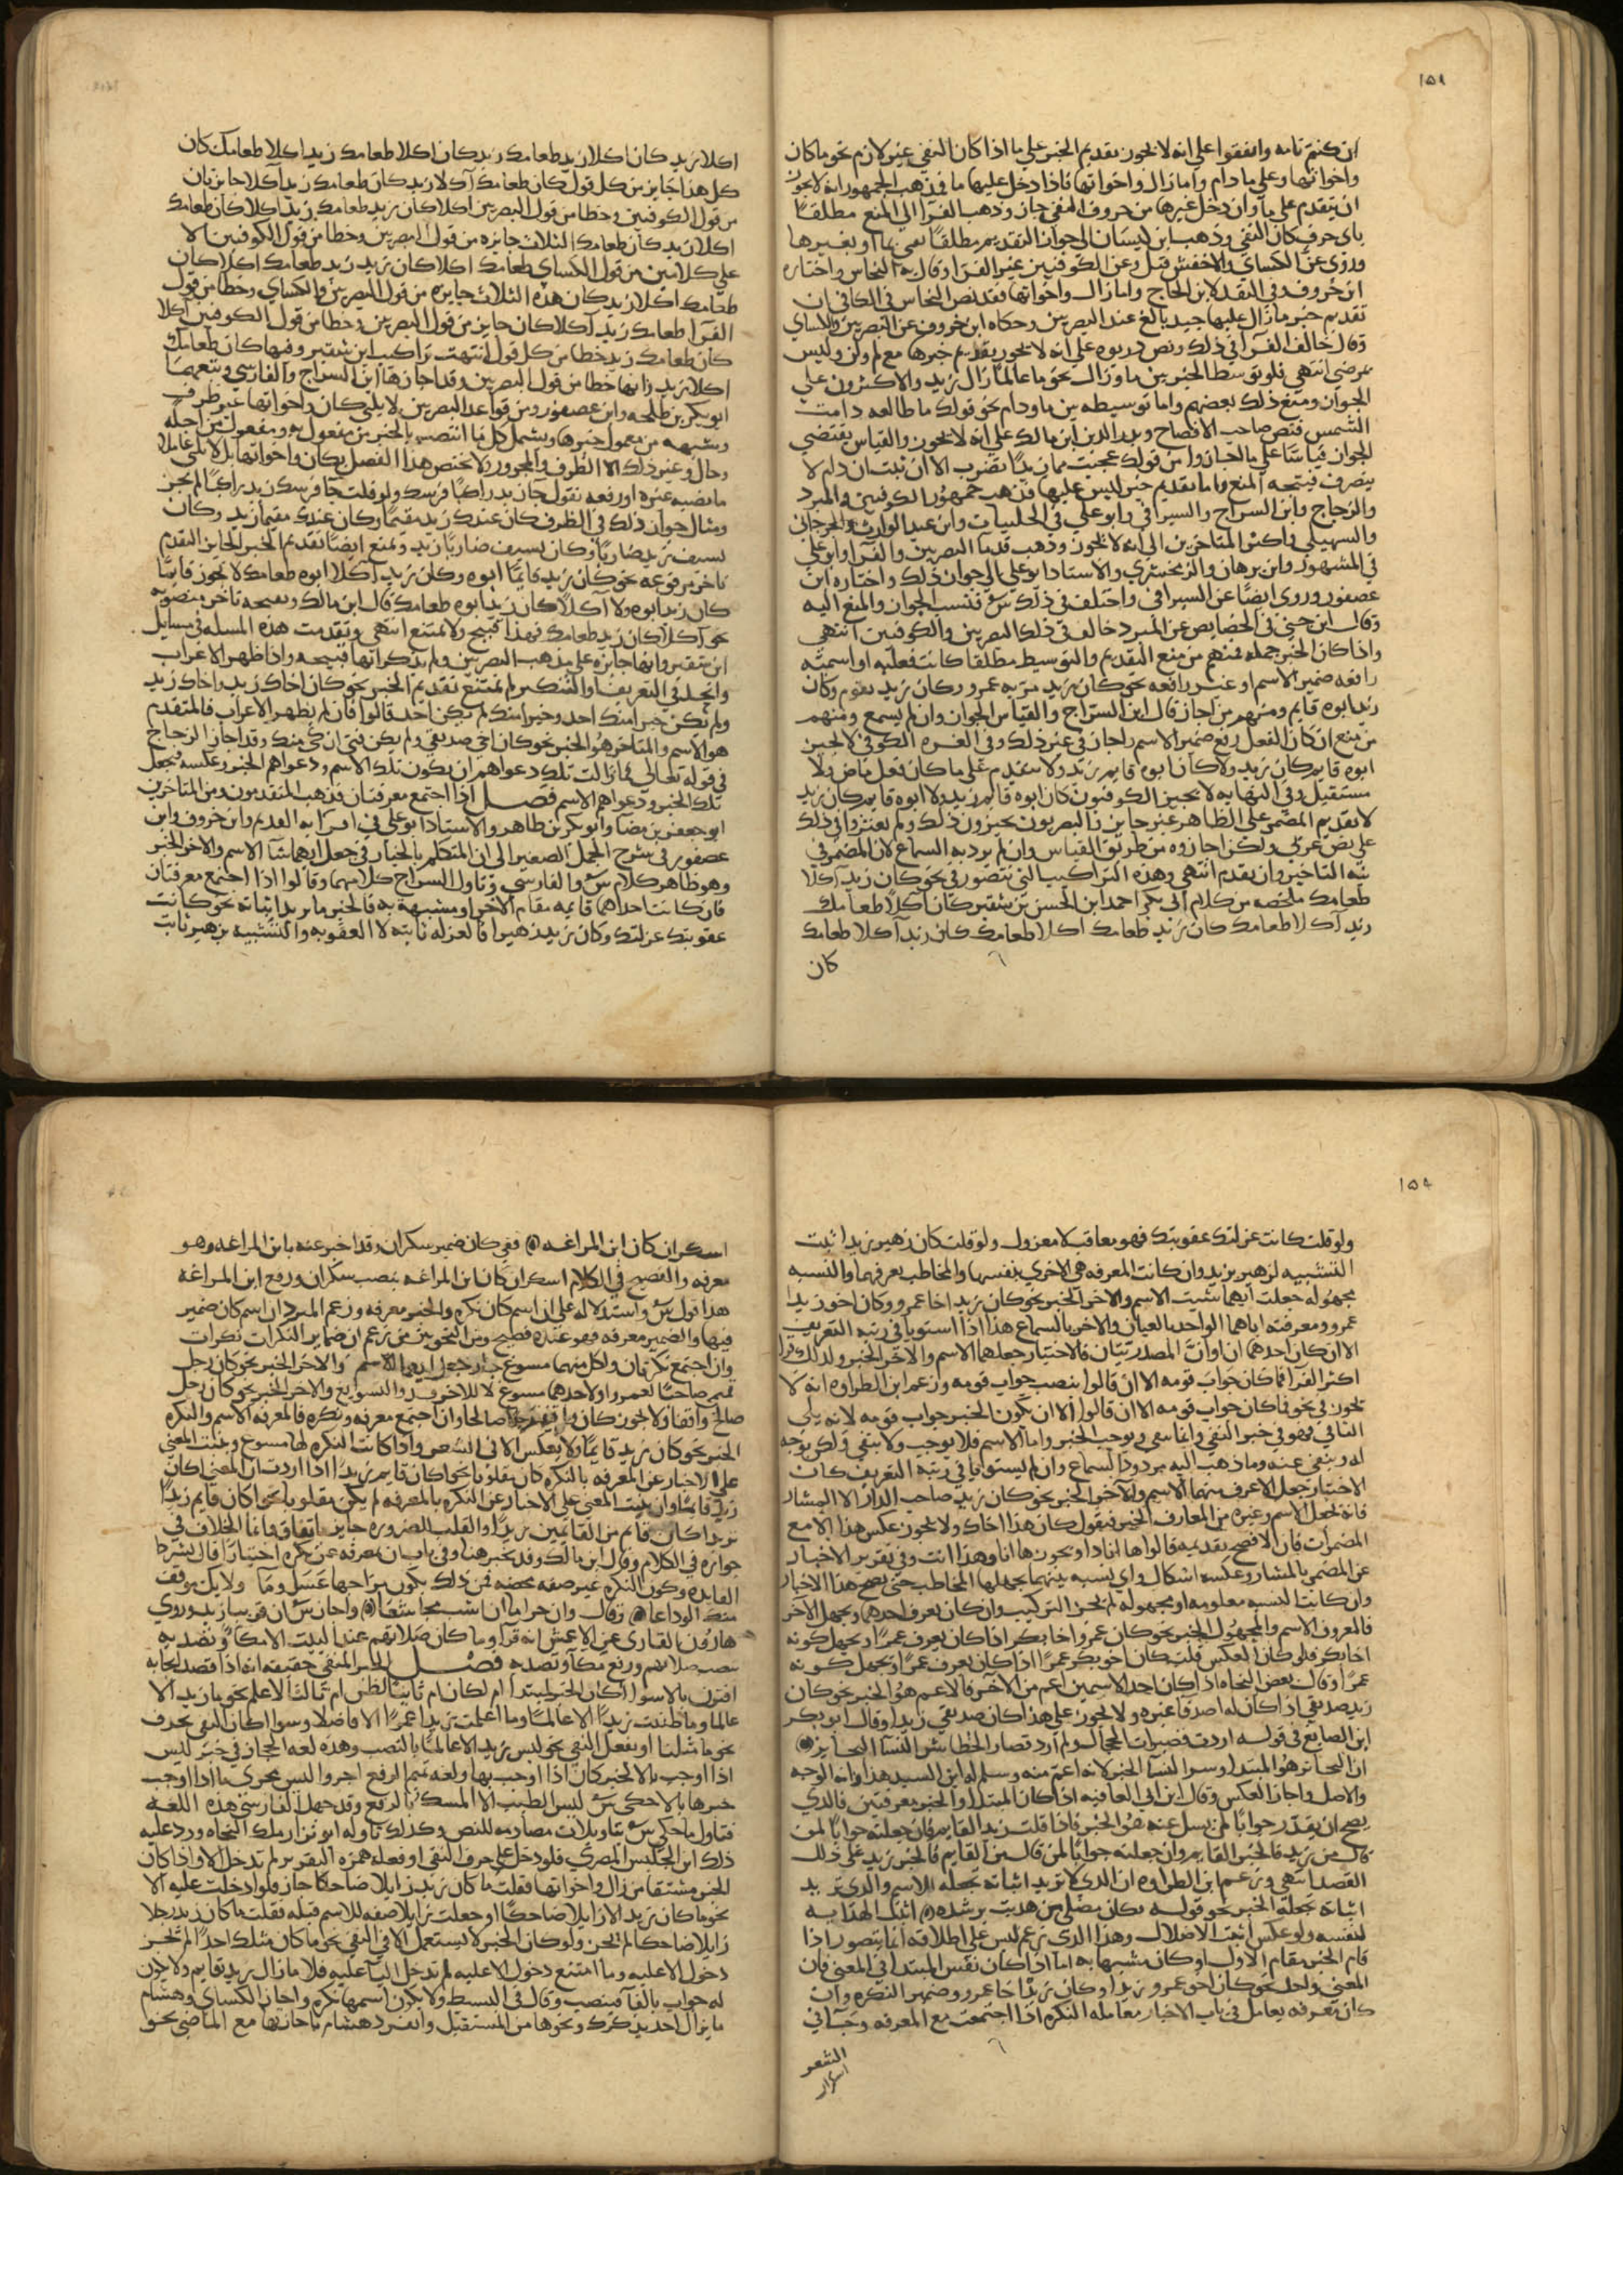 ١٥٨
ان كنتم تامه واتفقوا على انه لا يجوز تقديم الخبر على ما اذا كان النفي غير لازم نحو ما كان
واخواتها وعلى ما دام واما زال واخواتها فاذا دخل عليها ما فمذهب الجمهور انه لا يجوز
ان يتقدم على ما وان دخل غيرها من حروف النفي جاز وذهب الفرا الى المنع مطلقا
باى حرف كان النفي وذهب ابن كيسان الى جواز التقديم مطلقا نفى بما او بغيرها
وروى عن الكساي والاخفش قبل وعن الكوفيين غير الفرا وقال به النحاس واختاره
ابن خروف وفي النقد لابن الحاج واما زال واخواتها فقد نص النحاس في الكافي ان
تقديم خبر ما زال عليها جيد بالغ عند البصريين وحكاه ابن خروف عن البصريين والكساي
وقال خالف الفرا في ذلك ونص درتويه على انه لا يجوز تقديم خبرها مع لم ولن وليس
بمرضي انتهى فلو توسط الخبر بين ما وزال نحو ما عالما زال زيد والاكثرون على
الجواز ومنع ذلك بعضهم واما توسيطه بين ما ودام نحو قولك ما طالعه دامت
الشمس فنص صاحب الافصاح وبدر الدين ابن مالك على انه لا يجوز والقياس يقتضي
الجواز قياسا على ما المصدرية من قولك عجبت مما زيدا تضرب الا ان ثبت ان دام لا
يتصرف فيتجه المنع واما تقديم خبر ليس عليها فذهب جمهور الكوفيين والمبرد
والزجاج وابن السراج والسيرافي وابو علي في الحلبيات وابن عبد الوارث والجرجاني
والسهيلي واكثر المتاخرين الى انه لا يجوز وذهب قدما البصريين والفرا وابو علي
في المشهور وابن برهان والزمخشري والاستاذ ابو علي الى جواز ذلك واختاره ابن
عصفور وروى ايضا عن السيرافي واختلف في ذلك س فنسب الجواز والمنع اليه
وقال ابن جني في الخصايص عن المبرد خالف في ذلك البصريين والكوفيين انتهى
واذا كان الخبر جمله فمنهم من منع التقديم والتوسيط مطلقا كانت فعليه او اسميه
رافعه ضمير الاسم او غير رافعه نحو كان زيد مر به عمرو وكان زيد يقوم وكان
زيد ابوه قايم ومنهم من اجاز قال ابن السراج والقياس الجواز وان لم يسمع ومنهم
من منع ان كان الفعل رفع ضمير الاسم واجاز في غير ذلك وفي الغره الكوفي لا يجيز
ابوه قايم كان زيد ولا كان ابوه قايم زيد ولا يتقدم على ما كان فعل ماض ولا
مستقبل وفي النهايه لا يجيز الكوفيون كان ابوه قايم زيد ولا ابوه قايم كان زيد
لا تقديم المضمر على الظاهر غير جايز والبصريون يجيزون ذلك ولم يعثروا في ذلك
على نص عربي ولكن اجازوه من طريق القياس وان لم يرد به السماع لان المضمر في
نية التاخير وان تقدم انتهى وهذه التراكيب التي تتصور في نحو كان زيد آكلا
طعامك ملخصه من كلام ابي بكر احمد ابن الحسن بن شقير كان آكلا طعامك
زيد آكلا طعامك كان زيد طعامك اكلا طعامك كان زيد آكلا طعامك
كان
اكلا زيد كان اكلا زيد طعامك زيد كان اكلا طعامك زيد اكلا طعامك كان
كل هذا جايز من كل قول كان طعامك آكلا زيد كان طعامك زيد آكلا جايزتان
من قول الكوفيين وخطا من قول البصريين اكلا كان زيد طعامك زيد اكلا كان طعامك
اكلا زيد كان طعامك الثلاث جايزه من قول البصريين وخطا من قول الكوفيين الا
على كلامين من قول الكساي طعامك اكلا كان زيد زيد طعامك اكلا كان
طعامك اكلا زيد كان هذه الثلاث جايزه من قول البصريين والكساي وخطا من قول
الفرا طعامك زيد آكلا كان جايز من قول البصريين وخطا من قول الكوفيين اكلا
كان طعامك زيد خطا من كل قول انتهت تراكيب ابن شقير وفيها كان طعامك
اكلا زيد وانها خطا من قول البصريين وقد اجازها ابن السراج والفارسي وتبعهما
ابو بكر بن طلحه وابن عصفور ومن قواعد البصريين لا يلي كان واخواتها غير ظرف
وشبهه من معمول خبرها ويشمل كل ما انتصب بالخبر من مفعول به ومفعول من اجله
وحال وغير ذلك الا الظرف والمجرور ولا يختص هذا الفصل بكان واخواتها بل لا يلي عاملا
ما نصبه غيره او رفعه نقول جا زيد راكبا فرسك ولو قلت جا فرسك زيد راكبا لم يجز
ومثال جواز ذلك في الظرف كان عندك زيد مقيما وكان عندك مقيما زيد وكان
بسيف زيد ضاربا وكان بسيف ضاربا زيد ويمنع ايضا تقديم الخبر الجايز التقدم
تاخر مرفوعه نحو كان زيد قايما ابوه وكان زيد آكلا ابوه طعامك لا يجوز قايما
كان زيد ابوه ولا آكلا كان زيد ابوه طعامك قال ابن مالك ويقبحه تاخر منصوبه
نحو آكلا كان زيد طعامك فهذا قبيح ولا يمتنع انتهى وتقدمت هذه المسله في مسايل
ابن شقير وانها جايزه على مذهب البصريين ولم يذكر انها قبيحه واذا ظهر الاعراب
واتحدا في التعريف او التنكير لم يمتنع تقديم الخبر نحو كان اخاك زيد واخاك زيد
ولم يكن خيرا منك احد وخيرا منك لم يكن احد قالوا فان لم يظهر الاعراب فالمتقدم
هو الاسم والمتاخر هو الخبر نحو كان اخي صديقي ولم يكن فتى ازكى منك وقد اجاز الزجاج
في قوله تعالى فما زالت تلك دعواهم ان يكون تلك الاسم ودعواهم الخبر وعكسه فجعل
تلك الخبر ودعواهم الاسم فصل اذا اجتمع معرفتان فذهب المتقدمون ومن المتاخرين
ابو جعفر بن مضا وابو بكر بن طاهر والاستاذ ابو علي في اقرايه القديم وابن خروف وابن
عصفور في شرح الجمل الصغير الى ان المتكلم بالخيار في جعل ايهما شا الاسم والاخر الخبر
وهو ظاهر كلام س والفارسي وتاول السراج كلامهما وقالوا اذا اجتمع معرفتان
فان كانت احداهما قايمه مقام الاخرى او مشبهة به فالخبر ما يريد اثباته نحو كانت
عقوبتك عزلتك وكان زيد زهيرا فالعزله ثابته لا العقوبه والتشبيه بزهير ثابت
١٥٩
ولو قلت كانت عزلتك عقوبتك فهو معاقب لا معزول ولو قلت كان زهير زيدا ثبت
التشبيه لزهير بزيد وان كانت المعرفه هي الاخرى بنفسها والمخاطب يعرفهما والنسبه
مجهوله جعلت ايهما شيت الاسم والاخر الخبر نحو كان زيد اخا عمرو وكان اخو زيدا
عمرو ومعرفته اياهما الواحد بالعيان والاخر بالسماع هذا اذا استويا في رتبه التعريف
الا ان كان احدهما ان او ان المصدريتان فالاختيار جعلهما الاسم والاخر الخبر ولذلك قرا
اكثر القرا فما كان جواب قومه الا ان قالوا بنصب جواب قومه وزعم ابن الطراوه انه لا
يجوز في نحو فما كان جواب قومه الا ان قالوا الا ان يكون الخبر جواب قومه لانه يلي
النافي فهو في خبر النفي وانما نفى ويوجب الخبر واما الاسم فلا يوجب ولا ينفى ولكن يوجه
له وينفى عنه وما ذهب اليه مردود بالسماع وان لم يستويا في رتبة التعريف كان
الاختيار جعل الاعرف منهما الاسم والاخر الخبر نحو كان زيد صاحب الدار الا المشار
فانه يجعل الاسم وغيره من المعارف الخبر فيقول كان هذا اخاك ولا يجوز عكس هذا الا مع
المضمرات فان الافصح تقديمه قالوا ها اناذا ويجوز ها انا وهذا انت وفي تقرير الاخبار
عن المضمر بالمشار وعكسه اشكال واي نسبه بينهما يجهلها المخاطب حتى يصح هذا الاخبار
وان كانت النسبه معلومه او مجهوله لم يجز التركيب وان كان يعرف احدهما ويجهل الاخر
فالمعروف الاسم والمجهول الخبر نحو كان عمرو اخا بكر اذا كان يعرف عمرا ويجهل كونه
اخا بكر فلو كان العكس قلت كان اخو بكر عمرا اذا كان يعرف عمرا ويجهل كونه
عمرا وقال بعض النحاه اذا كان احد الاسمين اعم من الاخر فالاعم هو الخبر نحو كان
زيد صديقي اذا كان له اصدقا غيره ولا يجوز على هذا كان صديقي زيدا وقال ابو بكر
ابن الصايغ في قوله اردت قصيرات الحجال ولم ارد قصار الخطا شر النسا البحاتر
ان البحاتر هو المبتدا وشر النسا الخبر لانه اعم منه وسلم له ابن السيد هذا وانه الوجه
والاصل واجاز العكس وقال ابن ابي العافيه اذا كان المبتدا والخبر معرفتين فالذي
يصح ان يقدر جوابا لمن يسل عنه هو الخبر فاذا قلت زيد القايم فان جعلته جوابا لمن
قال من زيد فالخبر القايم وان جعلته جوابا لمن قال من القايم فالخبر زيد على ذلك
القصد انتهى وزعم ابن الطراوه ان الذي لا تريد اثباته تجعله الاسم والذي تريد
اثباته تجعله الخبر نحو قوله فكان مضلي من هديت برشده اثبت الهدايه
لنفسه ولو عكس اثبت الاضلال وهذا الذي زعم ليس على اطلاقه انما يتصور اذا
قام الخبر مقام الاول او كان مشبها به اما اذا كان نفس المبتدا في المعنى فان
المعنى واحد نحو كان اخو عمرو زيدا وكان زيد اخا عمرو وضمير النكره وان
كان معرفه يعامل في باب الاخبار معامله النكره اذا اجتمعت مع المعرفه وجا في
الشعر
اسكران كان ابن المراغه ففي كان ضمير سكران وقد اخبر عنه بابن المراغه وهو
معرفه والفصيح في الكلام اسكران كان ابن المراغه بنصب سكران ورفع ابن المراغه
هذا قول س واستدلاله على ان اسم كان نكره والخبر معرفه وزعم المبرد ان اسم كان ضمير
فيها والضمير معرفه فهو عنده فصيح ومن النحويين من زعم ان ضماير النكرات نكرات
وان اجتمع نكرتان ولكل منهما مسوغ جاز جعل ايهما الاسم والاخر الخبر نحو كان رجل
تميم صاحبا لعمرو او لاحدهما مسوغ لا للاخر فذو التسويغ والاخر الخبر نحو كان رجل
صالح واقفا ولا يجوز كان واقف رجلا صالحا وان اجتمع معرفه ونكره فالمعرفه الاسم والنكره
الخبر نحو كان زيد قايما ولا يعكس الا في الشعر واذا كانت النكره لها مسوغ وبنيت المعنى
على الاخبار عن المعرفه بالنكره كان مقلوبا نحو اكان قايم زيدا اذا اردت ان المعنى اكان
زيد قايما وان بنيت المعنى على الاخبار عن النكره بالمعرفه لم يكن مقلوبا نحو اكان قايم زيدا
تريد اكان قايم من القايمين زيدا والقلب للضروره جايز باتفاق وانما الخلاف في
جوازه في الكلام وقال ابن مالك وقد يخبر هنا وفي باب ان بمعرفه عن نكره اختيارا قال بشرط
الفايده وكون النكره غير صفه محضه فمن ذلك يكون مزاجها عسل وما ولا يك موقف
منك الوداعا وقال وان حراما ان اسب مجاشعا واجاز س ان قريبا زيد وروي
هارون القاري عن الاعمش انه قرا وما كان صلاتهم عند البيت الا مكا وتصديه
بنصب صلاتهم ورفع مكا وتصديه فصل الخبر المنفي حقيقه انه اذا قصد ايجابه
اقترن بالا سوا كان الخبر لمبتدا ام لكان ام ثانيا لظن ام ثالثا لاعلم نحو ما زيد الا
عالما وما ظننت زيدا الا عالما وما اعلمت زيدا عمرا الا فاضلا وسوا اكان النفي بحرف
نحو ما مثلنا او بفعل النفي نحو ليس زيد الا عالما بالنصب وهذه لغه الحجاز في خبر ليس
اذا اوجب بالا كخبر كان اذا اوجب بها ولغه تميم الرفع اجروا ليس مجرى ما اذا اوجب
خبرها بالا حكى س ليس الطيب الا المسك بالرفع وقد جهل الفارسي هذه اللغه
فتاول ما حكى س بتاويلات مصادمه للنص وكذلك تاوله ابو نزار ملك النحاه ورد عليه
ذلك ابن الجليس المصري فلو دخل على حرف النفي او فعله همزه التقرير لم تدخل الا واذا كان
الخبر مشتقا من زال واخواتها فقلت ما كان زيد زايلا ضاحكا جاز فلو ادخلت عليه الا
نحو ما كان زيد الا زايلا ضاحكا او جعلت زايلا صفه للاسم قبله فقلت ما كان زيد رجلا
زايلا ضاحكا لم يجز ولو كان الخبر لا يستعمل الا في النفي نحو ما كان مثلك احدا لم يجز
دخول الا عليه وما امتنع دخول الا عليه لم تدخل البا عليه فلا ما زال زيد بقايم ولا يجوز
له جواب بالفا فينصب وقال في البسيط ولا يكون اسمها نكره واجاز الكساي وهشام
ما يزال احد يذكرك ونحوها من المستقبل وانفرد هشام باجازتها مع الماضي نحو